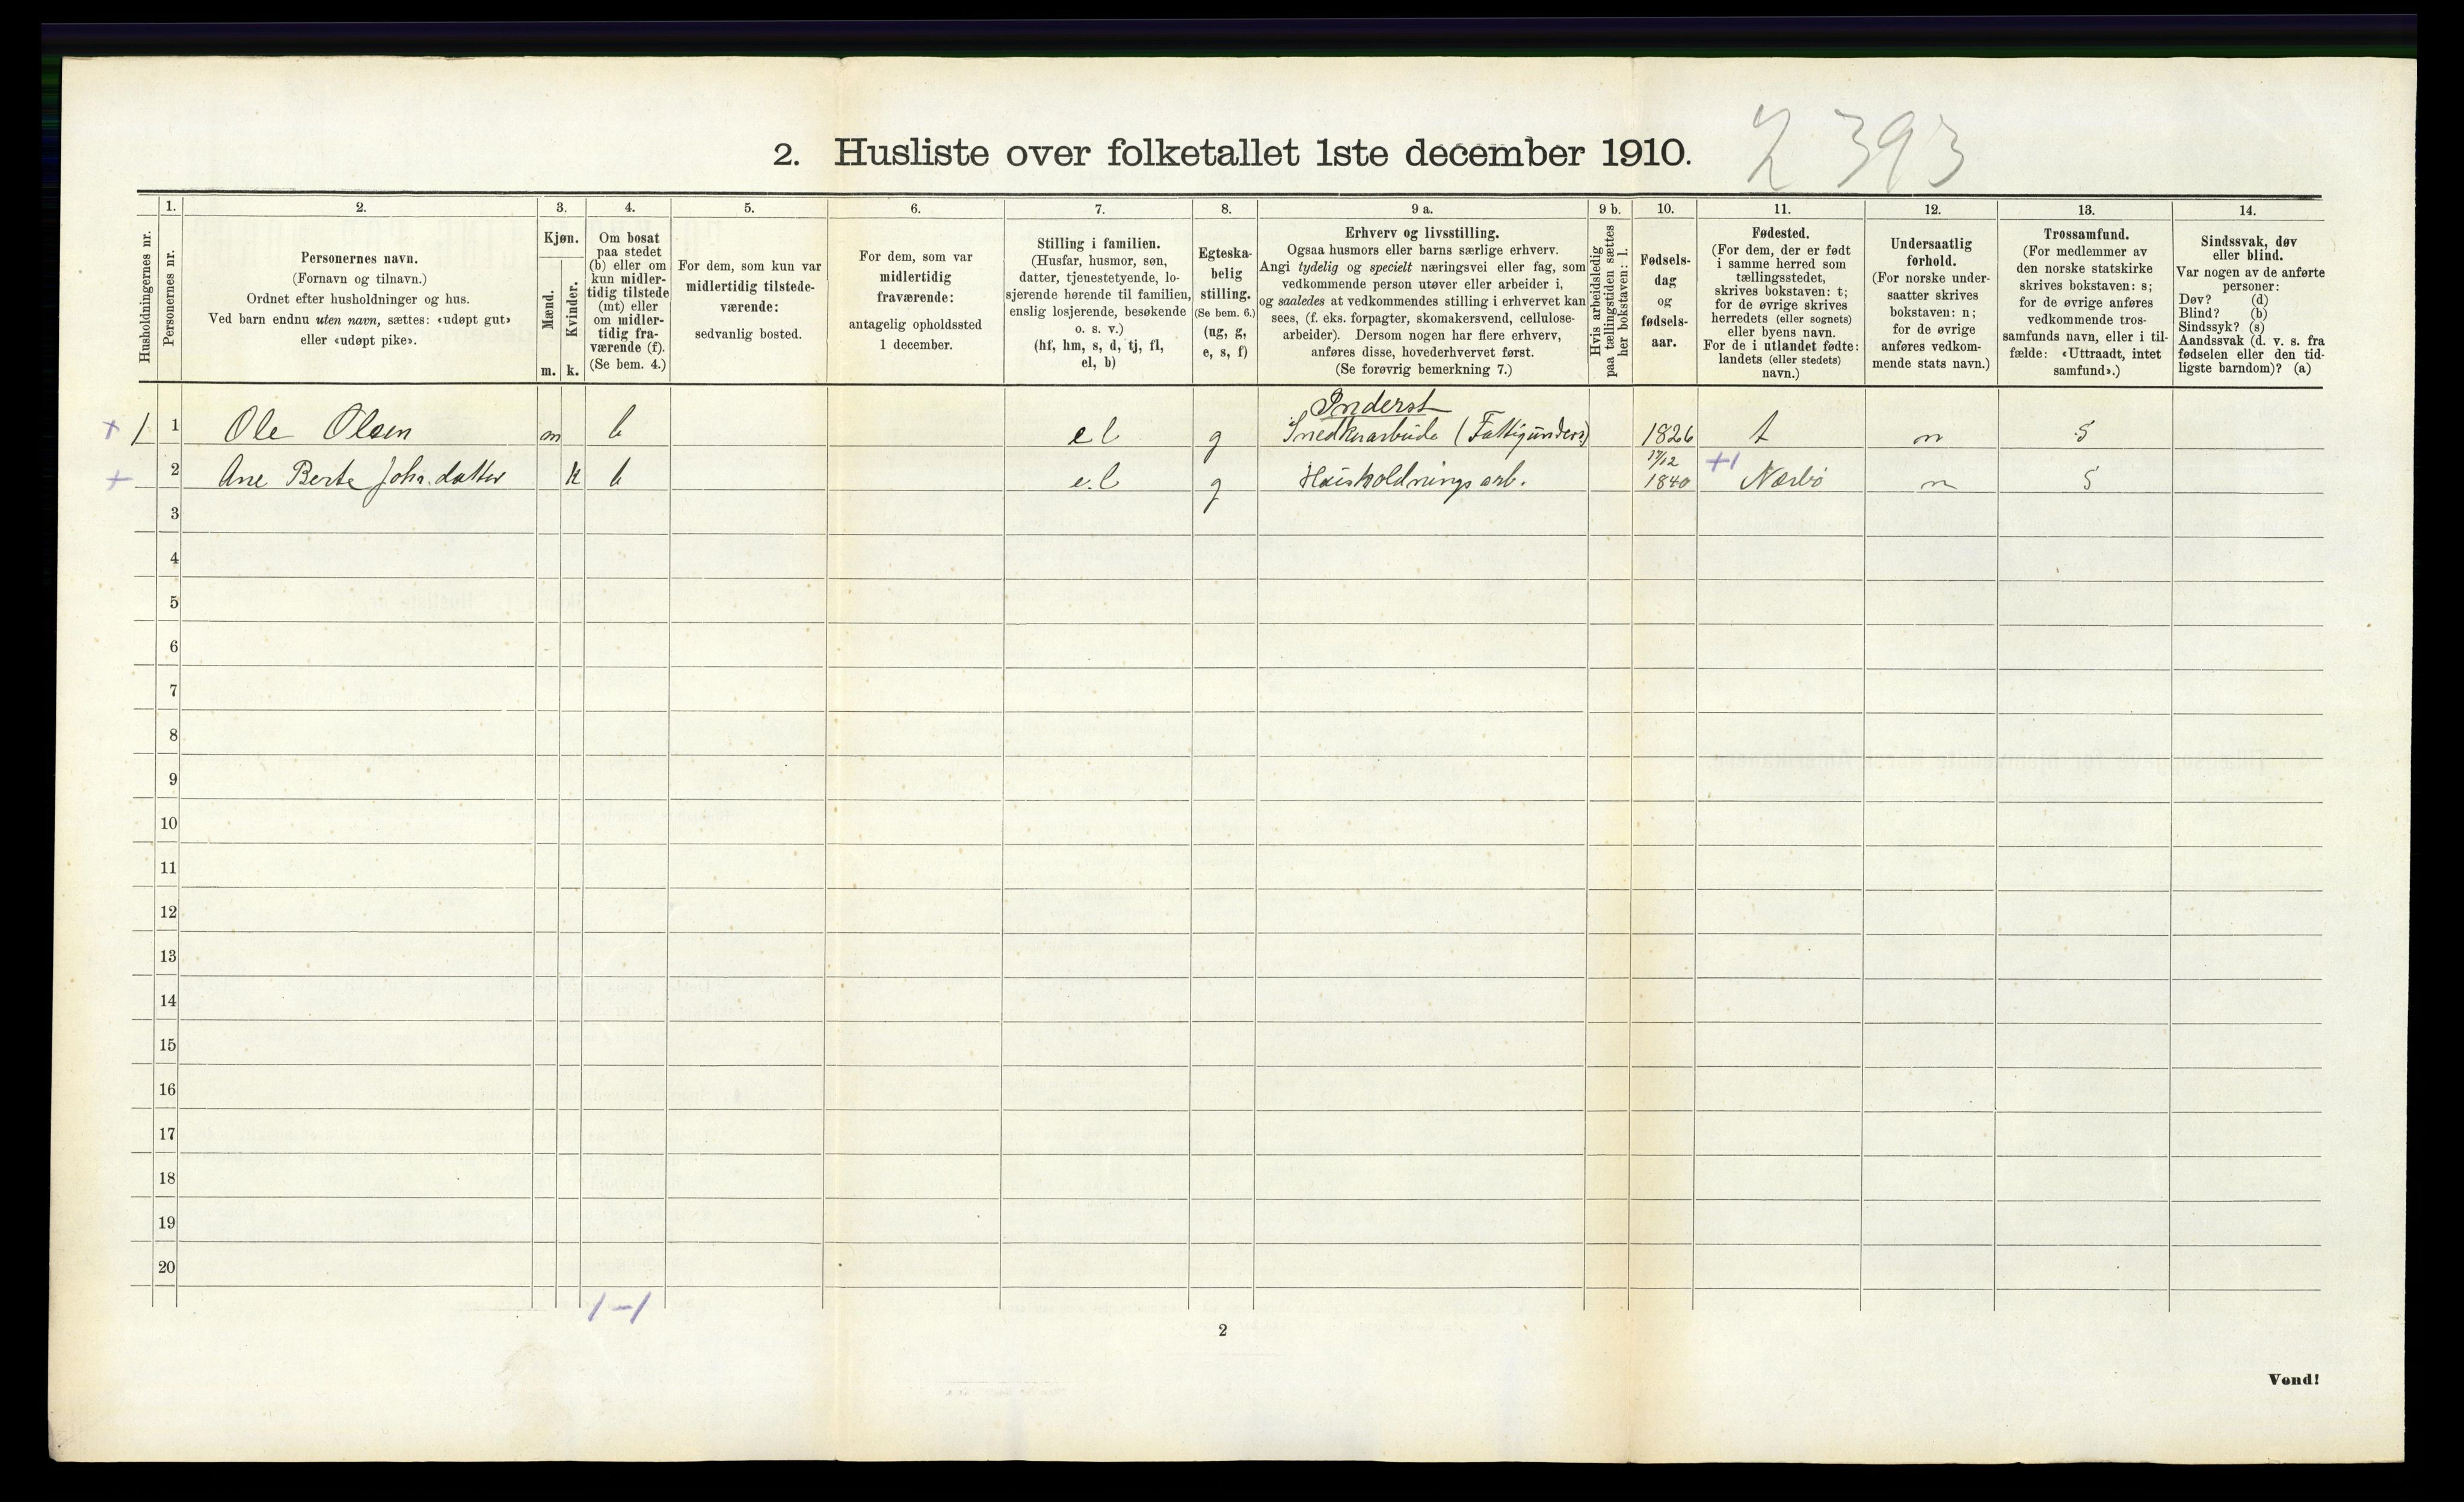 2393
2. Husliste over folketallet 1ste december 1910.
Husholdningernes nr.
1.
Personernes nr.
2.
Personernes navn.
(Fornavn og tilnavn.)
Ordnet efter husholdninger og hus.
Ved barn endnu uten navn, sættes: «udøpt gut»
eller «udøpt pike».
3.
Kjøn.
Mænd.
m.
Kvinder.
k.
4.
Om bosat
paa stedet
(b) eller om
kun midler-
tidig tilstede
(mt) eller
om midler-
tidig fra-
værende (f).
(Se bem. 4.)
5.
For dem, som kun var
midlertidig tilstede-
værende:
sedvanlig bosted.
6.
For dem, som var
midlertidig
fraværende:
antagelig opholdssted
1 december.
7.
Stilling i familien.
(Husfar, husmor, søn,
datter, tjenestetyende, lo-
sjerende hørende til familien,
enslig losjerende, besøkende
o. s. v.)
(hf, hm, s, d, tj, fl,
el, b)
8.
Egteska-
belig
stilling.
(Se bem. 6.)
(ug, g,
e, s, f)
9 a.
Erhverv og livsstilling.
Ogsaa husmors eller barns særlige erhverv.
Angi tydelig og specielt næringsvei eller fag, som
vedkommende person utøver eller arbeider i,
og saaledes at vedkommendes stilling i erhvervet kan
sees, (f. eks. forpagter, skomakersvend, cellulose-
arbeider). Dersom nogen har flere erhverv,
anføres disse, hovederhvervet først.
(Se forøvrig bemerkning 7.)
9 b.
Hvis arbeidsledig
paa tællingstiden sættes
her bokstaven: l.
10.
Fødsels-
dag
og
fødsels-
aar.
11.
Fødested.
(For dem, der er født
i samme herred som
tællingsstedet,
skrives bokstaven: t;
for de øvrige skrives
herredets (eller sognets)
eller byens navn.
For de i utlandet fødte:
landets (eller stedets)
navn.)
12.
Undersaatlig
forhold.
(For norske under-
saatter skrives
bokstaven: n;
for de øvrige
anføres vedkom-
mende stats navn.)
13.
Trossamfund.
(For medlemmer av
den norske statskirke
skrives bokstaven: s;
for de øvrige anføres
vedkommende tros-
samfunds navn, eller i til-
fælde: «Uttraadt, intet
samfund».)
14.
Sindssvak, døv
eller blind.
Var nogen av de anførte
personer:
Døv? (d)
Blind? (b)
Sindssyk? (s)
Aandssvak (d. v. s. fra
fødselen eller den tid-
ligste barndom)? (a)
Inderst
+ 1 1 Ole Olsen m b el g Snedkerarbeide (Fattigunders) 1826 t n s
17/12 +1
+ 2 Ane Berte Joh. datter k b e.l g Husholdnings arb. 1840 Nærbø n s
3
4
5
6
7
8
9
10
11
12
13
14
15
16
17
18
19
20
1-1
2
Vend!